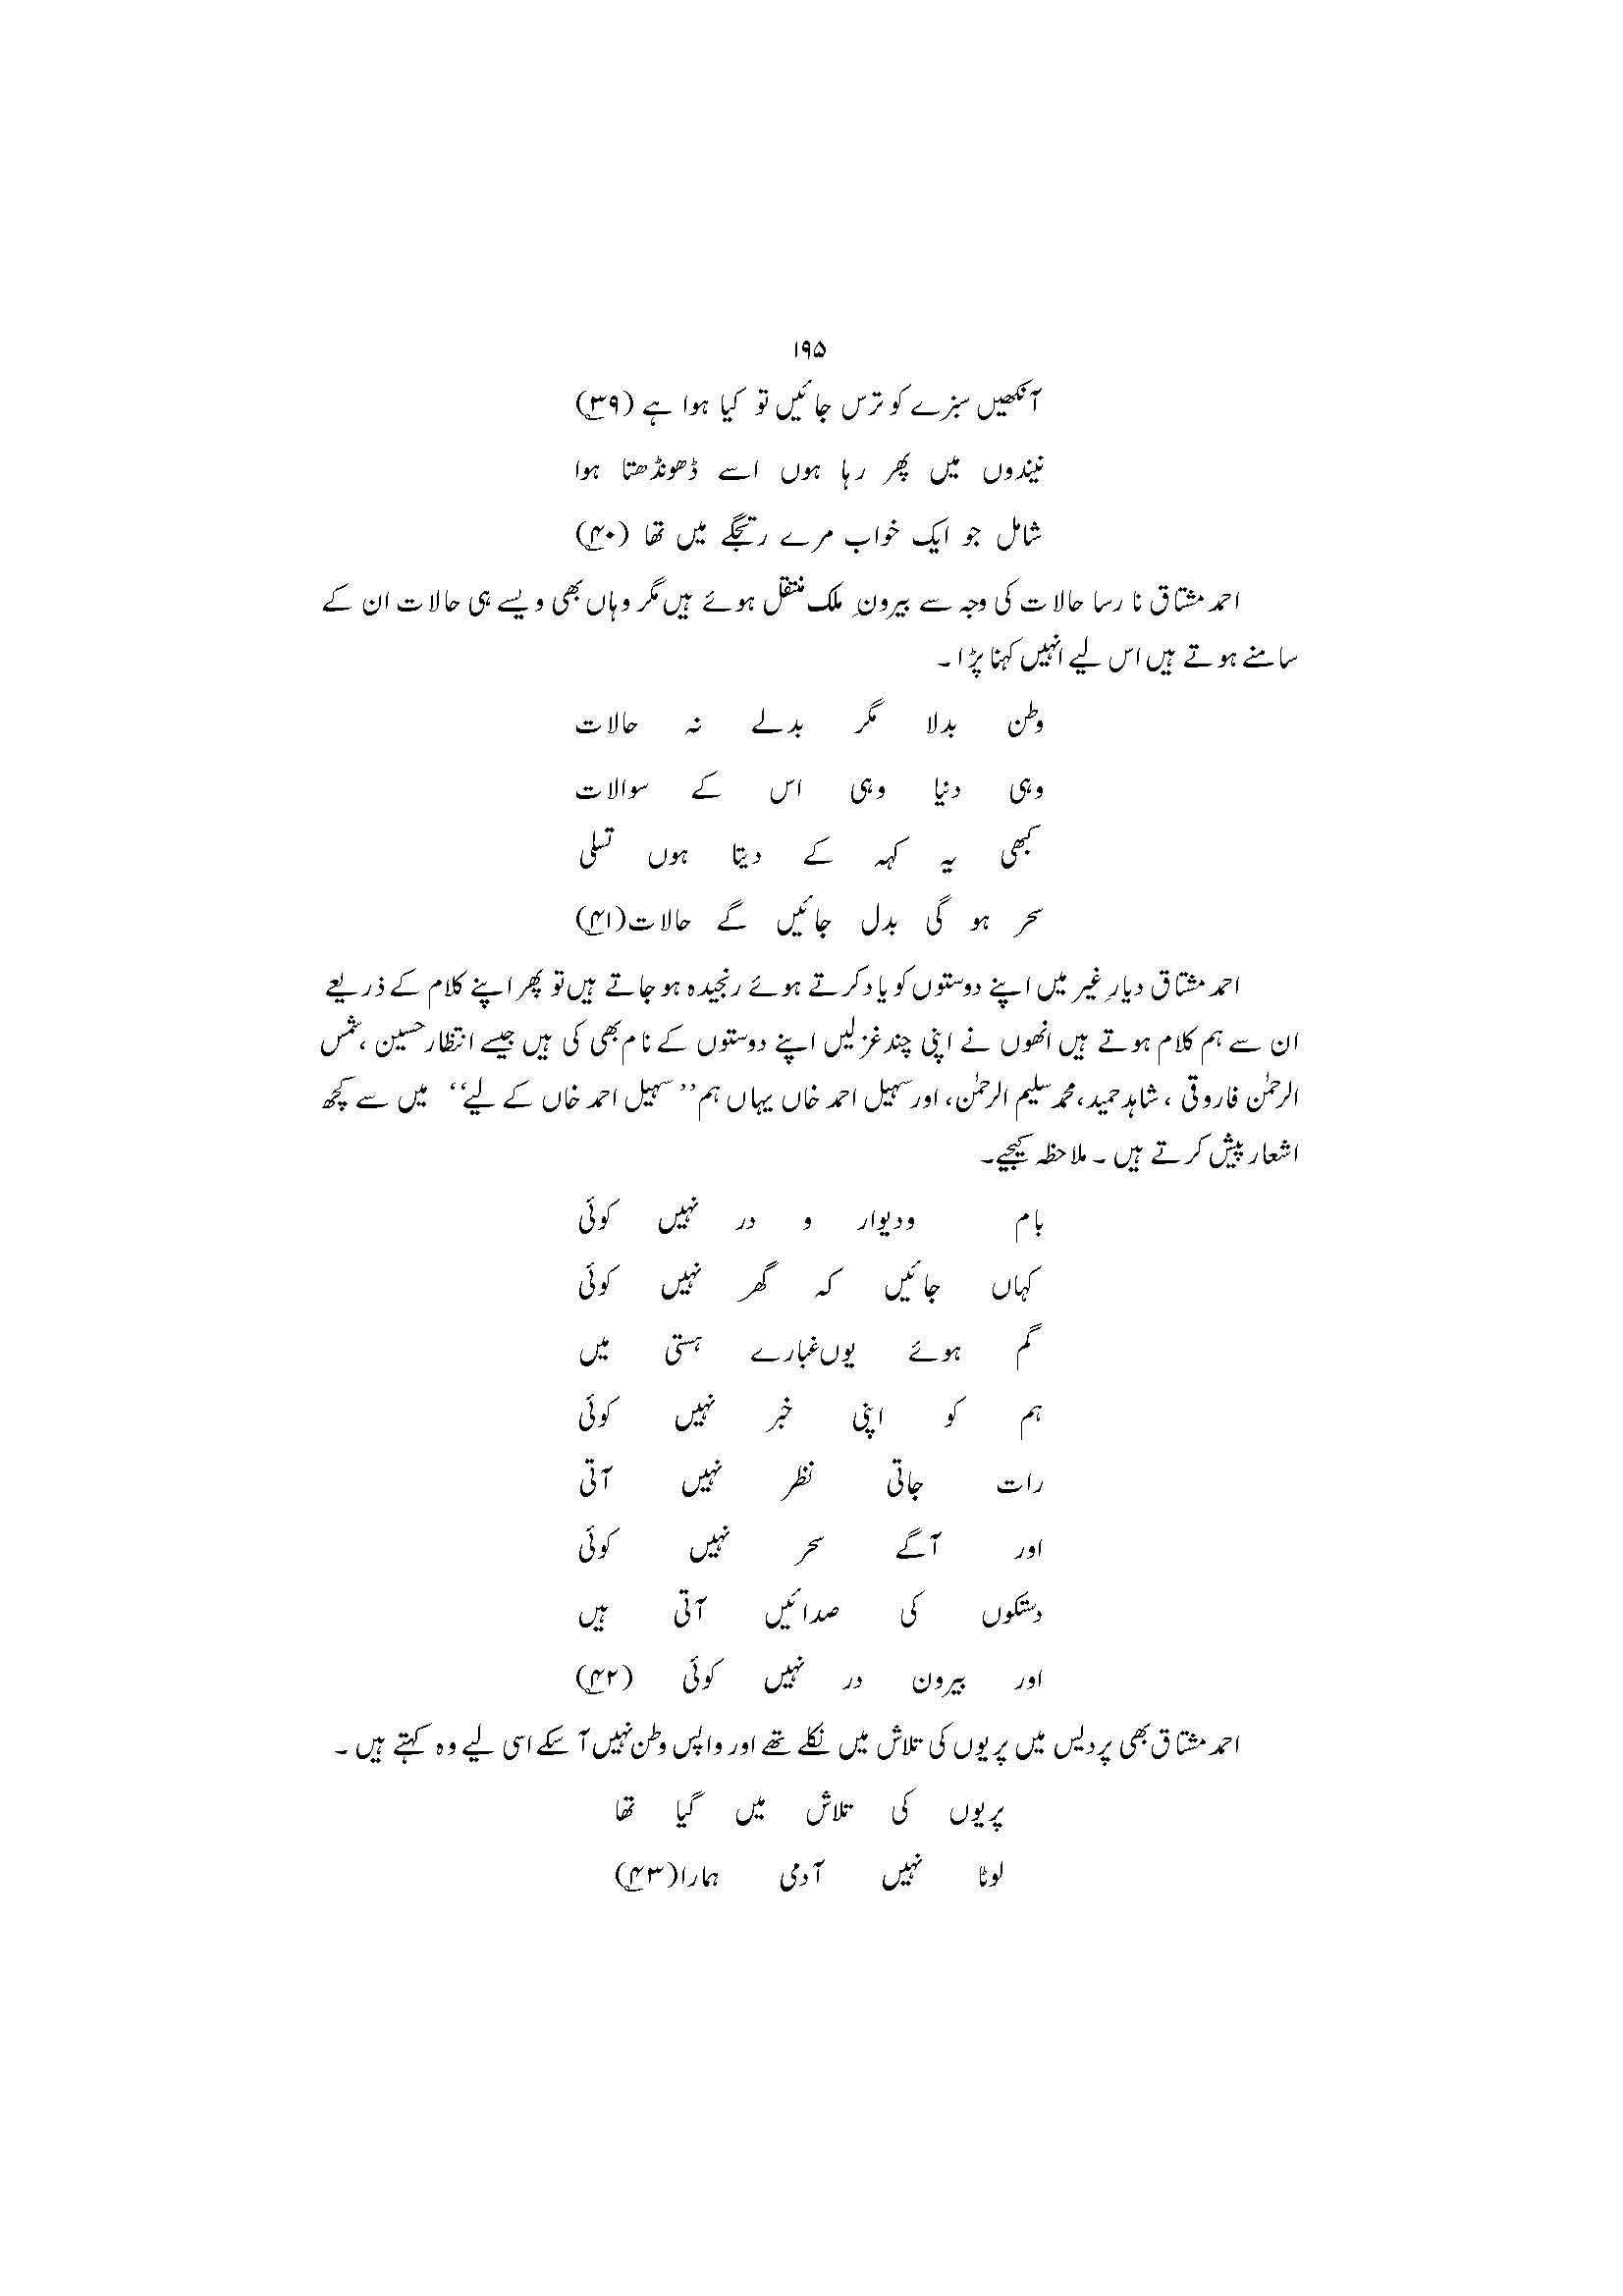 ۱۹۵
آنکھیں سبزے کو ترس جائیں تو کیا ہوا ہے (۳۹)
نیندوں میں پھر رہا ہوں اسے ڈھونڈھتا ہوا
شامل جو ایک خواب مرے رتجگے میں تھا (۴۰)
احمد مشتاق نا رسا حالات کی وجہ سے بیرونِ ملک منتقل ہوئے ہیں مگر وہاں بھی ویسے ہی حالات ان کے
سامنے ہوتے ہیں اس لیے انہیں کہنا پڑا ۔
وطن بدلا مگر بدلے نہ حالات
وہی دنیا وہی اس کے سوالات
کبھی یہ کہہ کے دیتا ہوں تسلی
سحر ہو گی بدل جائیں گے حالات(۴۱)
احمد مشتاق دیارِ غیر میں اپنے دوستوں کو یاد کرتے ہوئے رنجیدہ ہو جاتے ہیں تو پھر اپنے کلام کے ذریعے
ان سے ہم کلام ہوتے ہیں انھوں نے اپنی چند غزلیں اپنے دوستوں کے نام بھی کی ہیں جیسے انتظار حسین ،شمس
الرحمٰن فاروقی ، شاہد حمید،محمد سلیم الرحمٰن، اور سہیل احمد خاں یہاں ہم’’ سہیل احمد خاں کے لیے‘‘ میں سے کچھ
اشعار پیش کرتے ہیں ۔ ملاحظہ کیجیے۔
بام ودیوار و در نہیں کوئی
کہاں جائیں کہ گھر نہیں کوئی
گم ہوئے یوں غبارے ہستی میں
ہم کو اپنی خبر نہیں کوئی
رات جاتی نظر نہیں آتی
اور آگے سحر نہیں کوئی
دستکوں کی صدائیں آتی ہیں
اور بیرون در نہیں کوئی (۴۲)
احمد مشتاق بھی پردیس میں پریوں کی تلاش میں نکلے تھے اور واپس وطن نہیں آ سکے اسی لیے وہ کہتے ہیں ۔
پریوں کی تلاش میں گیا تھا
لوٹا نہیں آدمی ہمارا(۴۳)